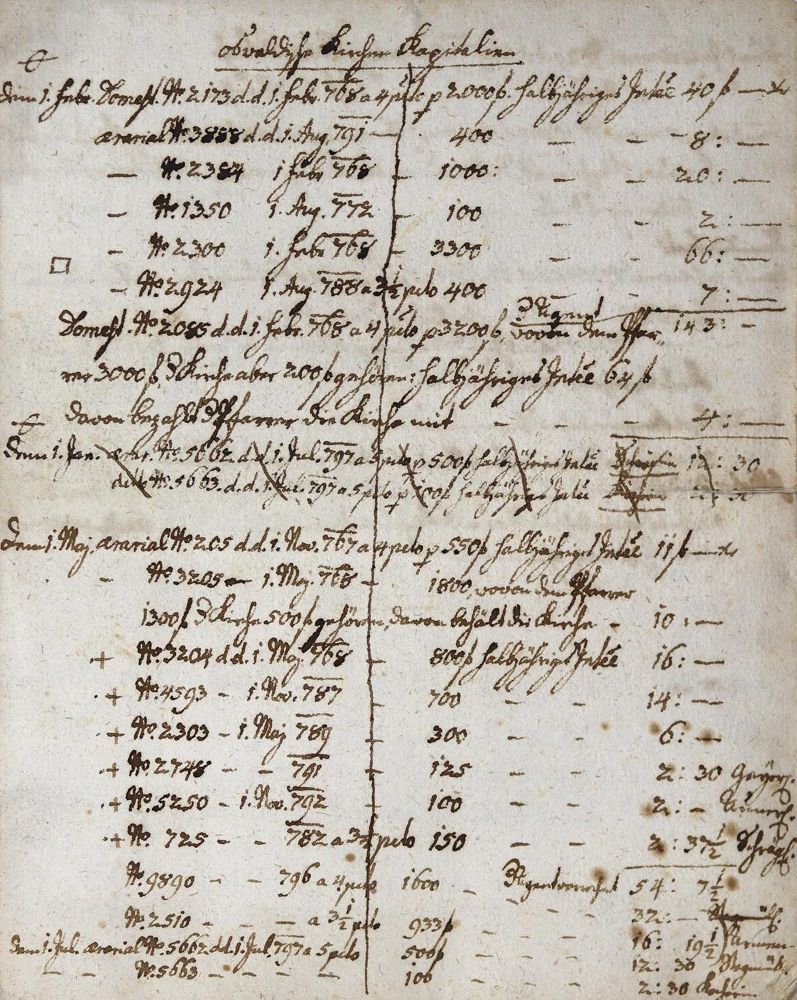 Osvaldische Kirchen Kapitalien
dem 1. Febr. Domest. No. 2173 d.d. 1. Febr. 768 a 4 pcto p 2000 f halbjähriges Intee 40 f — xr
ærarial No. 3888 d.d. 1. Aug. 791 — 400 — - 8: —
— No. 2384 1 Febr 768 - 1000: — - 20: —
— No. 1350 1. Aug. 772 - 100 — - 2: —
- No. 2300 1. Febr 768 - 3300 — - 66: —
- No. 2924 1. Aug. 788 a 3½ pcto 400 - - 7: —
Domest. No. 2085 d.d. 1. Febr. 768 a 4 pcto p 3200 f, wovon dem Pfar- 143: -
rer 3000 f, d Kirche aber 200 f gehören: halbjähriges Intee 64 f
davon bezahlt d Pfarrer die Kirche mit - - - 4: —
dem 1. Jan. ærar. No. 5662. d.d. 1. Jul. 797 a 5 pcto p 500 f halbjähriges Intee 12: 30
detto No. 5663. d.d. 1. Jul. 797 a 5 pcto p 100 f halbjähriges Intee
dem 1. Maj. ærarial No. 205 d.d. 1. Nov. 767 a 4 pcto p 550 f halbjähriges Intee 11 f — xr
- No. 3205 — 1. Maj. 768 - 1800, wovon dem Pfarrer
1300 f, d Kirche 500 f gehören, davon behält die Kirche - 10: —
+ No. 3204 d.d. 1. Maj 768 - 800 f halbjähriges Intee 16: —
+ No. 4593 - 1. Nov. 787 - 700 - - 14: —
+ No. 2303 - 1. Maj 789 - 300 - - 6: —
+ No. 2748 - - 791 - 125 - - 2: 30
+ No. 5250 - 1. Nov. 792 - 100 - - 2: -
+ No. 725 - - 782 a 3½ pcto 150 - - 2: 37½
No. 9890 - - 796 a 4 pcto 1600 - 54: 7½
No. 2510 - - — a 3½ pcto 933 f - - - 32: —
dem 1. Jul. ærarial No. 5662 d.d. 1. Jul. 797 a 5 pcto 500 f - - 16: 19½
- - No. 5663 - - - - 100 - - 12: 30
2: 30